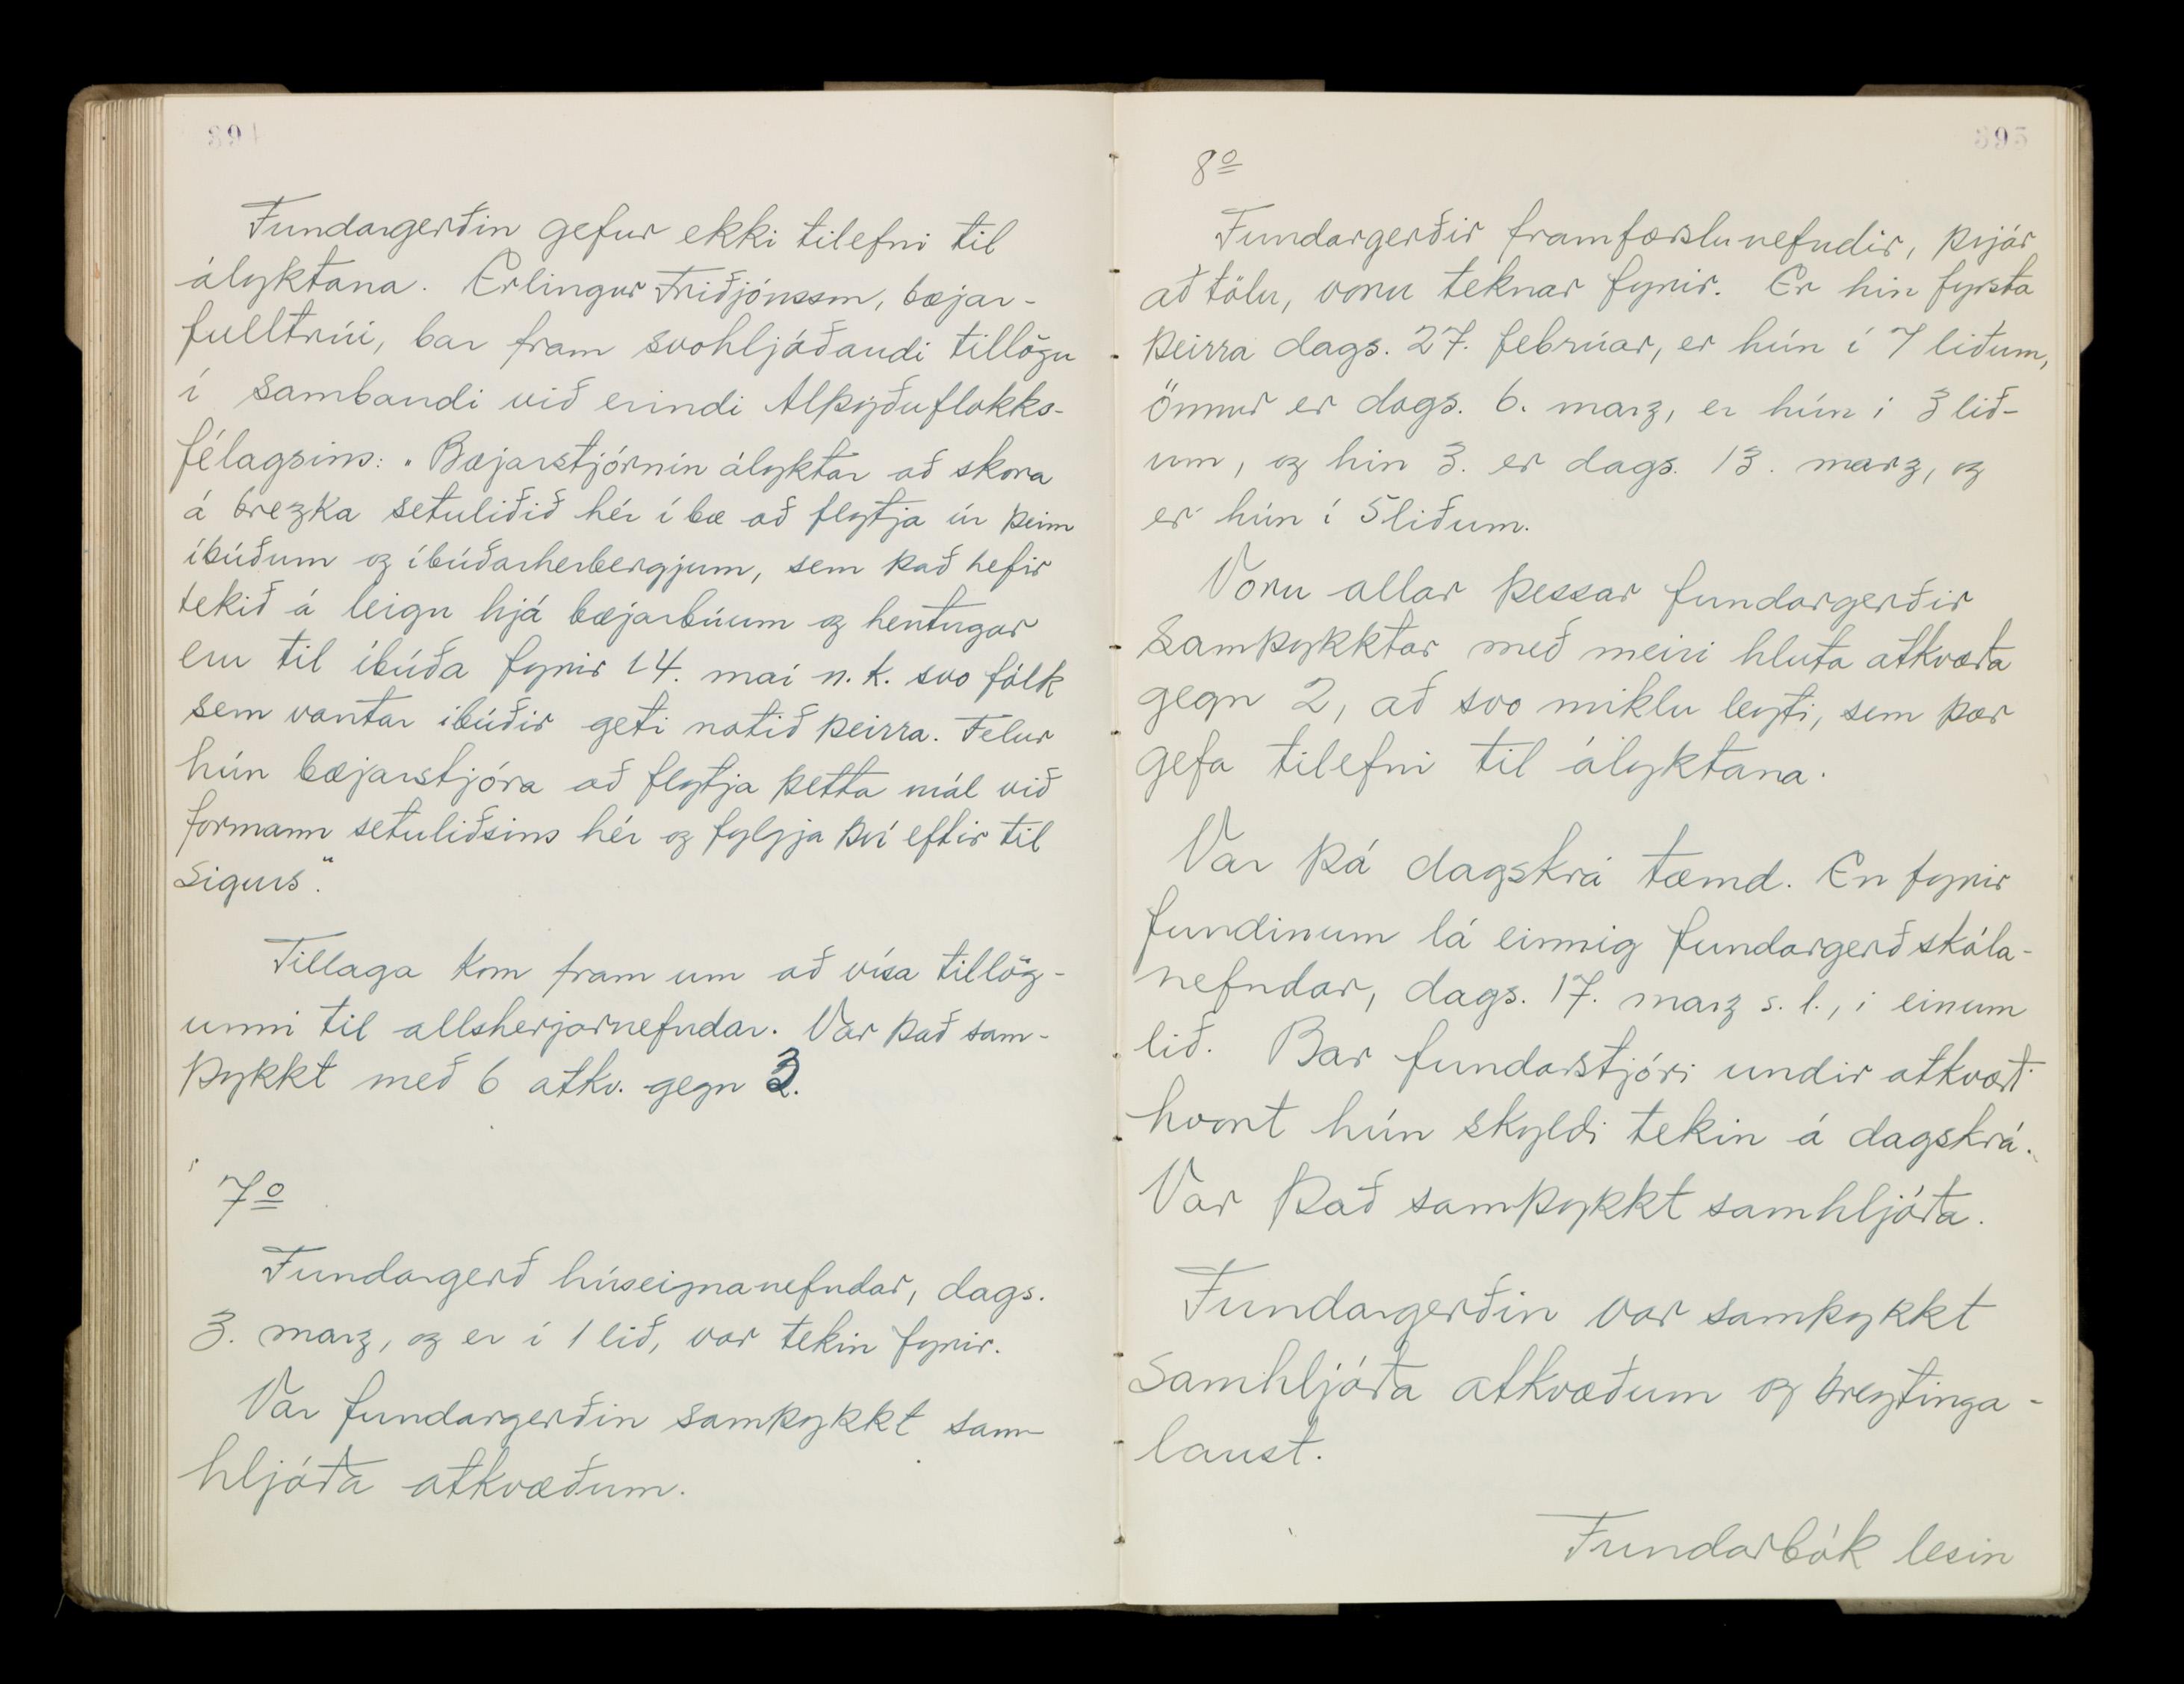 394
Fundargerðin gefur ekki tilefni til
ályktana. Erlingur Friðjónsson, bæjar-
fulltrúi, bar fram svohljóðandi tillögu
í sambandi við erindi Alþýðuflokks-
félagsins: „Bæjarstjórnin ályktar að skora
á brezka setuliðið hér í bæ að flytja úr þeim
íbúðum og íbúðarherbergjum, sem það hefir
tekið á leigu hjá bæjarbúum og hentugar
eru til íbúða fyrir 14. maí n.k. svo fólk
sem vantar íbúðir geti notið þeirra. Felur
hún bæjarstjóra að flytja þetta mál við
formann setuliðsins hér og fylgja því eftir til
sigurs".
Tillaga kom fram um að vísa tillög-
unni til allsherjarnefndar. Var það sam-
þykkt með 6 atkv. gegn
7o
Fundargerð húseignanefndar, dags.
3. marz, og er í 1 lið, var tekin fyrir.
Var fundargerðin samþykkt sam-
hljóða atkvæðum.
395
8o
Fundargerðir framfærslunefndir, þrjár
að tölu, voru teknar fyrir. Er hin fyrsta
þeirra dags. 27. febrúar, er hún í 7 liðum,
önnur er dags. 6. marz, er hún í 3 lið-
um, og hin 3. er dags. 13. marz, og
er hún í 5 liðum.
Voru allar þessar fundargerðir
samþykktar með meiri hluta atkvæða
gegn 2, að svo miklu leyti, sem þær
gefa tilefni til ályktana.
Var þá dagskrá tæmd. En fyrir
fundinum lá einnig fundargerð skóla-
nefndar, dags. 17. marz s.l., í einum
lið. Bar fundarstjóri undir atkvæði
hvort hún skyldi tekin á dagskrá.
Var það samþykkt samhljóða.
Fundargerðin var samþykkt
samhljóða atkvæðum og breytinga-
laust.
Fundarbók lesin